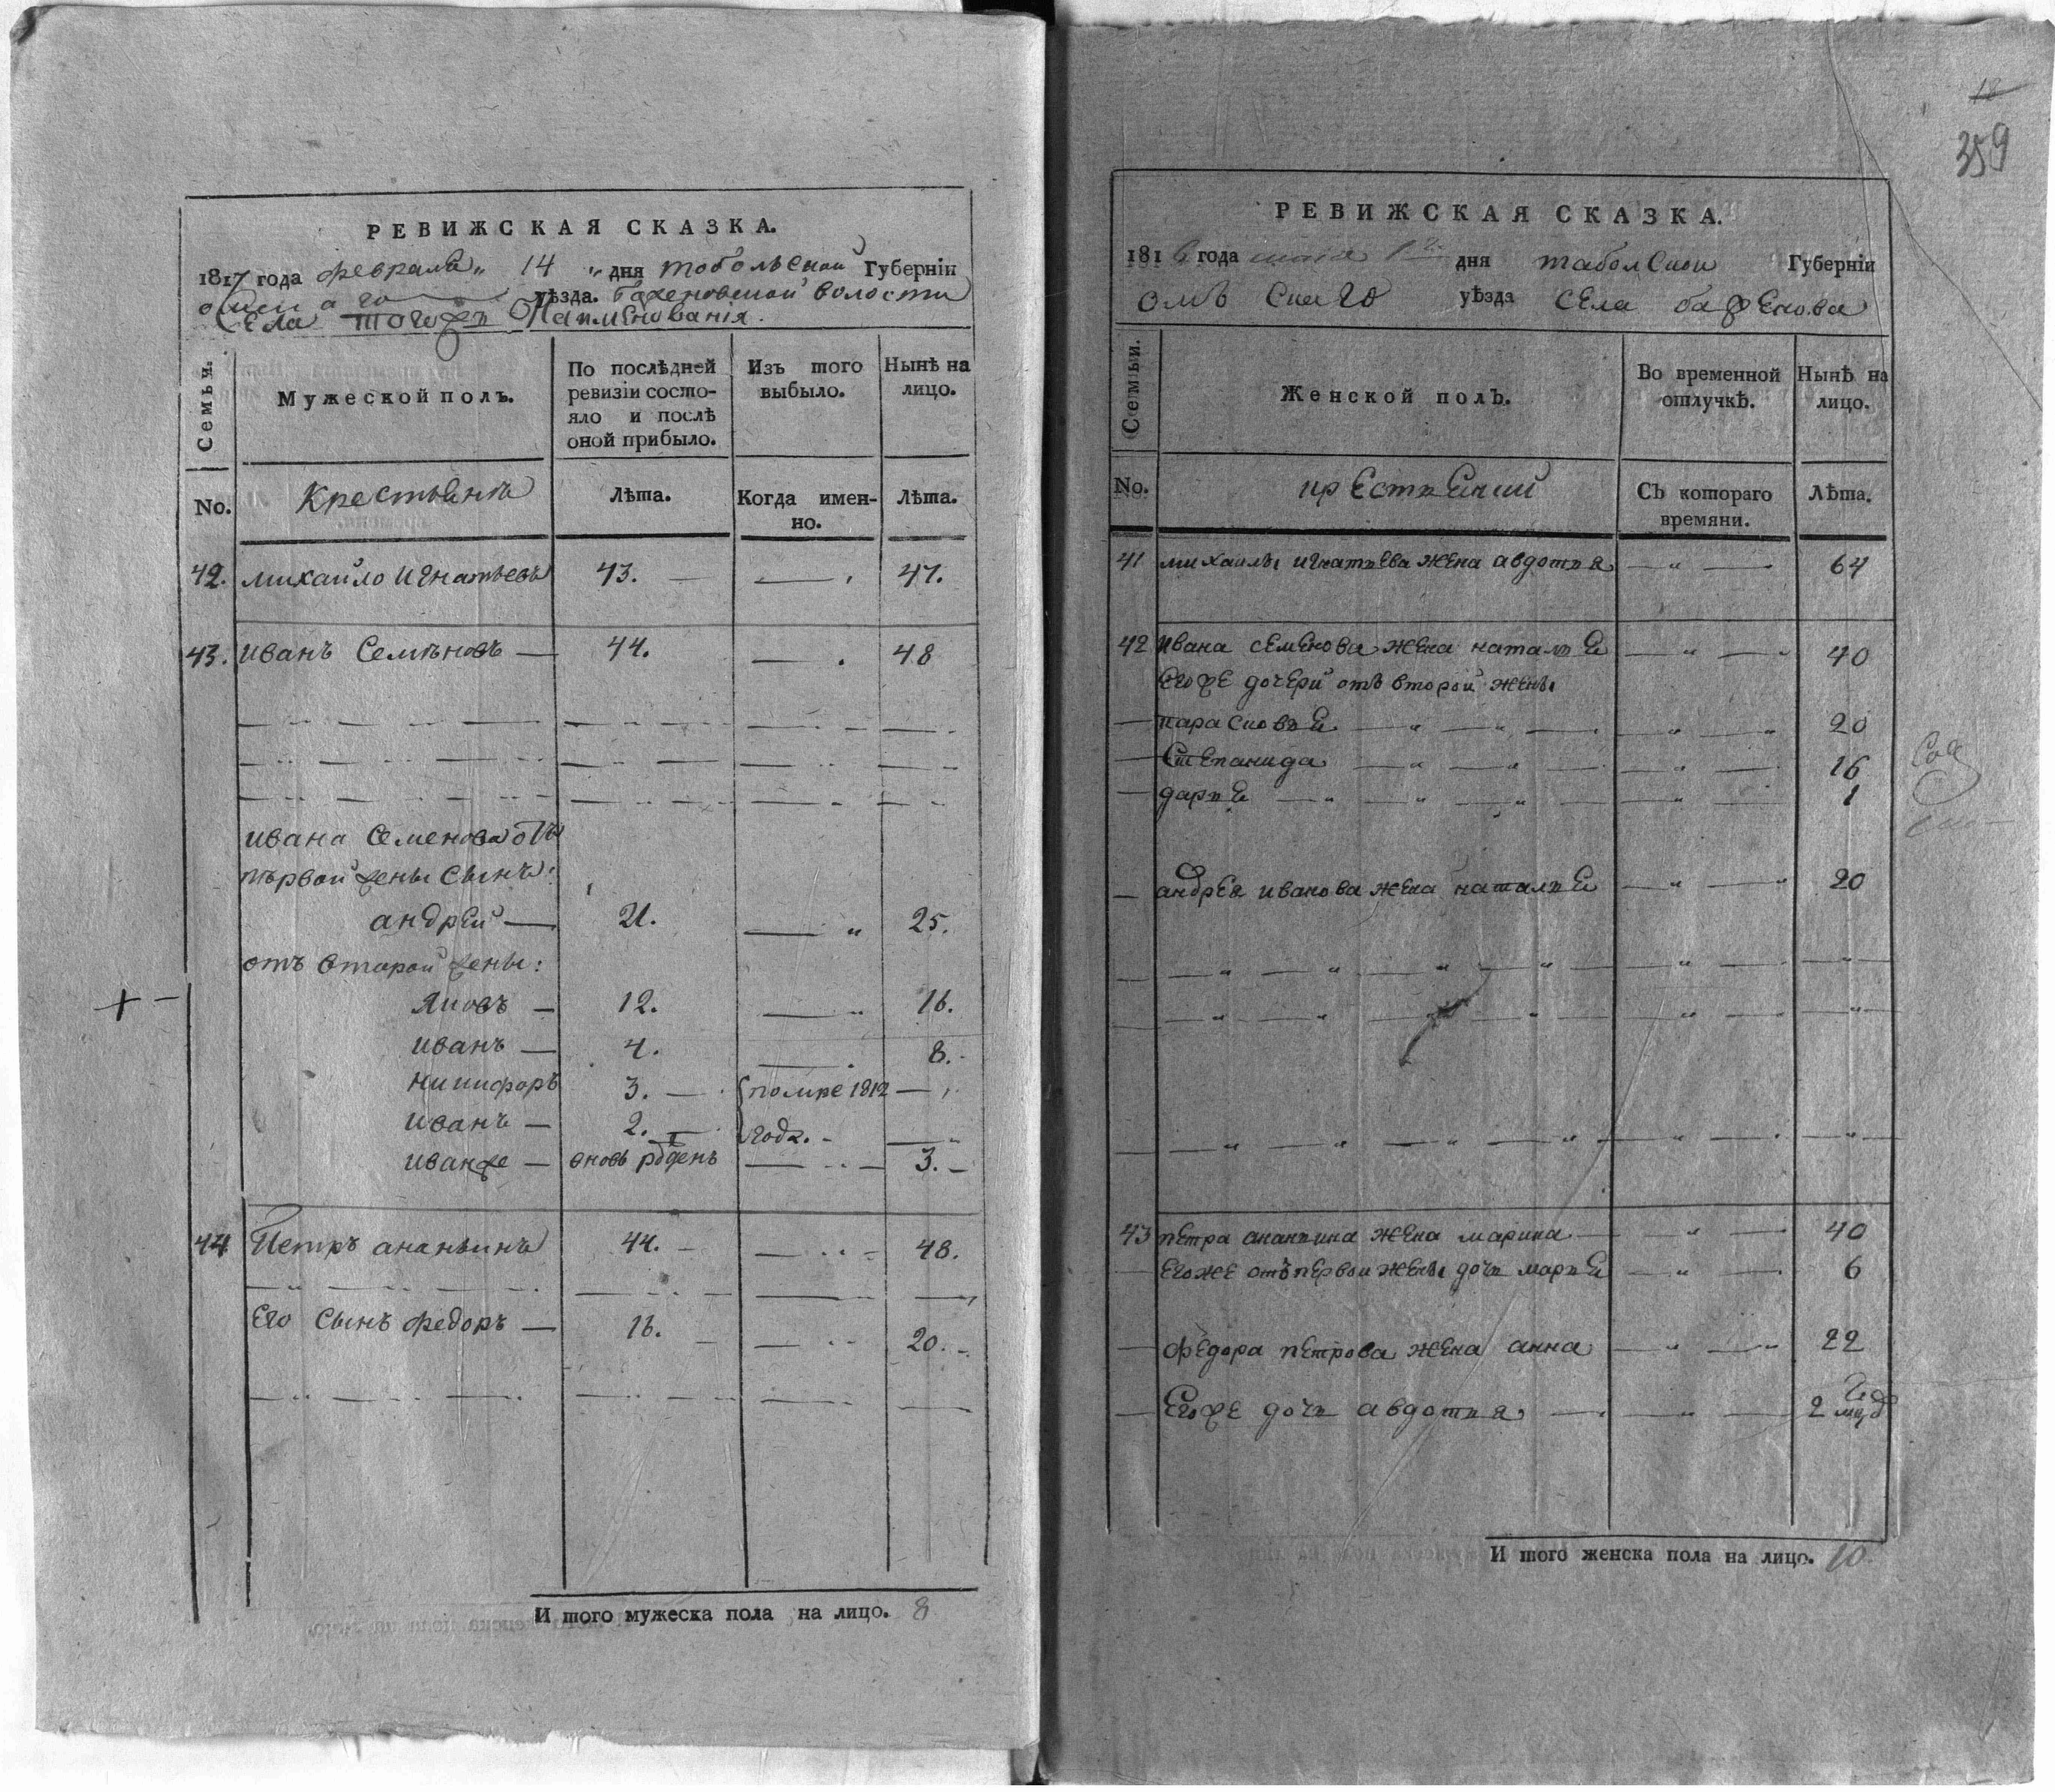 РЕВИЖСКАЯ СКАЗКА.
1817 года февраля „ 14 „ дня тобольской Губернiи
омскаго уѣзда. Баженовской волости
Села тогожъ Наименованiя.
Семьи.
Мужеской полъ.
По послѣдней ревизiи состо-
яло и послѣ
оной прибыло.
Изъ того выбыло.
Нынѣ на лицо.
No.
Крестьянъ
Лѣта.
Когда имен-
но.
Лѣта.
42. михайло Игнатьевъ 43. — — 47.
43. иванъ Семѣновъ — 44. — 48
ивана Семенова отъ
первой жены Сынъ:
андрей — 21. — „ 25.
отъ второй жены:
Яковъ — 12. — „ 16.
иванъ — 4. — 8.
никифоръ 3. — помре 1812 —
иванъ — 2. — года. — —
иванже — вновь рожденъ — 3. —
44 Петръ ананьинъ 44. — — 48.
Его Сынъ федоръ — 16. — — 20. —
И того мужеска пола на лицо. 8
18
359
РЕВИЖСКАЯ СКАЗКА.
1816 года дня таболской Губернiи
омъскаго уѣзда села баженова
Семьи.
Женской полъ.
Во временной отлучкѣ.
Нынѣ на лицо.
No.
крестьянии
Съ котораго
времяни.
Лѣта.
41 михаилы игнатьева жена авдотья — „ — 64
42 ивана семенова жена наталья — „ — 40
егоже дочери отъ второй жены
— парасковья — „ — „ — „ — 20
— степанида — „ — „ — „ — 16
— дарья — „ — „ — „ — 1
— андрея иванова жена наталья — „ — „ 20
43 петра ананьина жена марина — „ — 40
— егоже отъ первой жены дочь марья — „ — 6
— федора петрова жена анна — „ — „ 22
— егоже дочь авдотья — — „ — 2
И того женска пола на лицо. 10